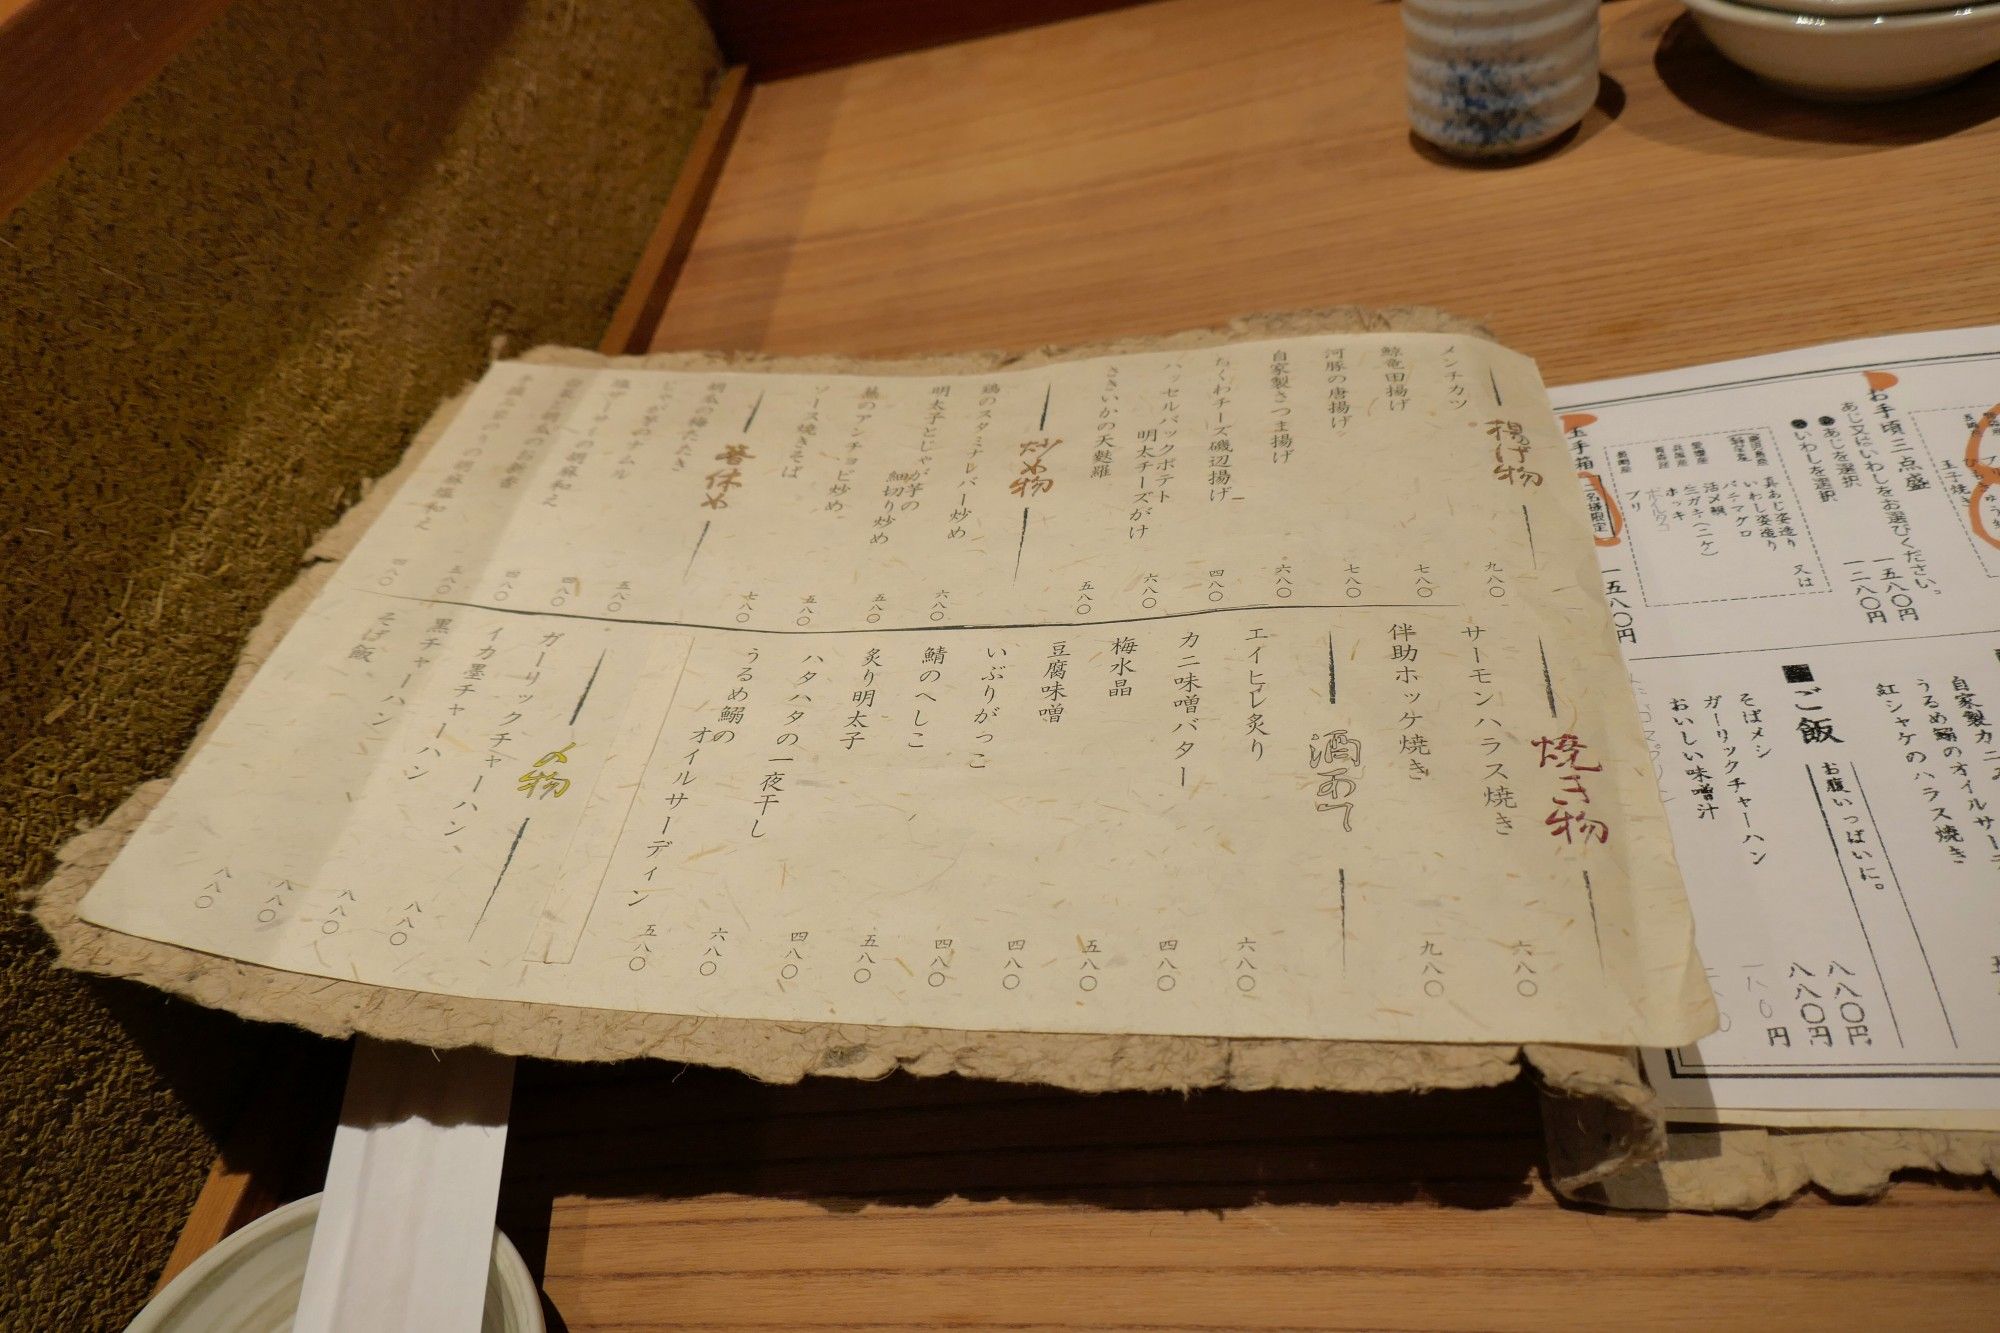 揚げ物
メンチカツ
九八〇
鯨竜田揚げ
七八〇
河豚の唐揚げ
七八〇
自家製さつま揚げ
六八〇
ちくわチーズ磯辺揚げ
四八〇
ハッセルバックポテト
明太チーズがけ
六八〇
さきいかの天麩羅
五八〇
炒め物
鶏のスタミナレバー炒め
六八〇
明太子とじゃが芋の
細切り炒め
五八〇
のアンチョビ炒め
五八〇
ソース焼きそば
七八〇
箸休め
胡瓜の梅たたき
五八〇
じゃが芋のナムル
四八〇
の胡麻和え
四八〇
五八〇
四八〇
焼き物
サーモンハラス焼き
六八〇
伴助ホッケ焼き
九八〇
酒あて
エイヒレ炙り
六八〇
カニ味噌バター
四八〇
梅水晶
五八〇
豆腐味噌
四八〇
いぶりがっこ
四八〇
鯖のへしこ
五八〇
炙り明太子
四八〇
ハタハタの一夜干し
六八〇
うるめ鰯の
オイルサーディン
五八〇
〆物
ガーリックチャーハン
八八〇
イカ墨チャーハン
八八〇
黒チャーハン
八八〇
そば飯
八八〇
お手頃三点盛
あじ又はいわしをお選びください。
●あじを選択
一五八〇円
●いわしを選択
一二八〇円
玉子焼き
玉手箱
二名様限定
一五八〇円
真あじ姿造り 又は
いわし姿造り
バチマグロ
活〆鯛
生ガキ(二ケ)
ホッキ
ブリ
自家製カニ
うるめ鰯のオイルサー
紅シャケのハラス焼き
■ご飯
お腹いっぱいに。
そばメシ
八八〇円
ガーリックチャーハン
八八〇円
おいしい味噌汁
一八〇円